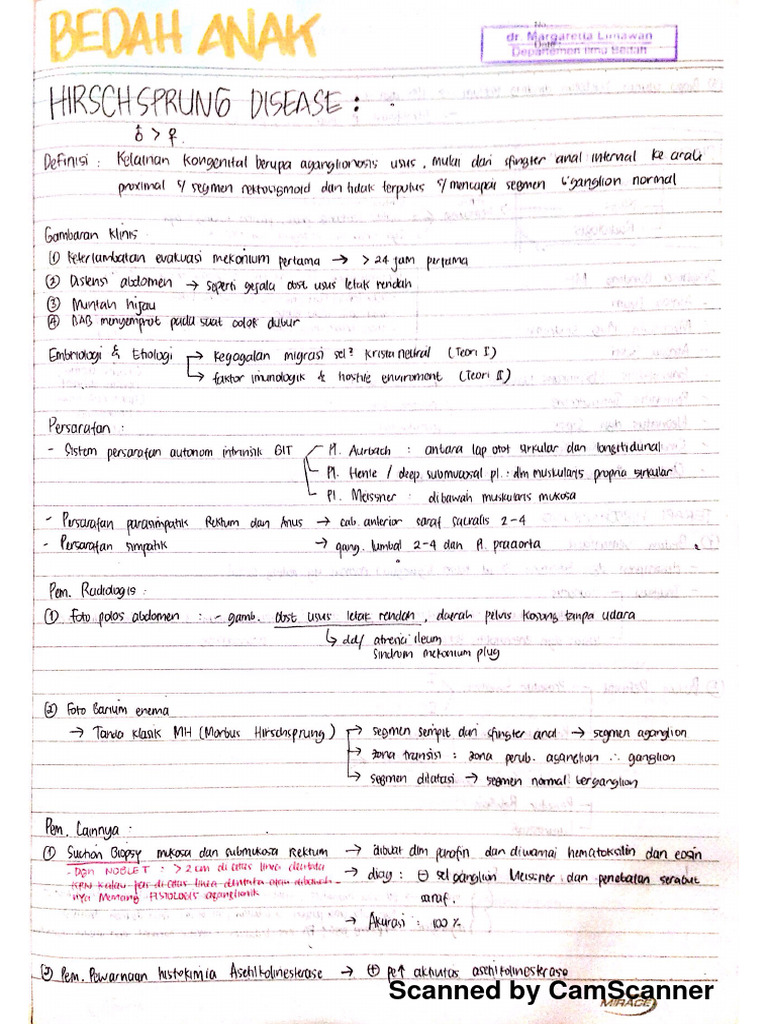 BEDAH ANAK
No.
dr. Margaretta Limawan
Date
Departemen Ilmu Bedah
HIRSCHSPRUNG DISEASE :
♂ > ♀.
Definisi : Kelainan kongenital berupa aganglionosis usus, mulai dari sfingter anal internal ke arah
proximal s/ segmen rektosigmoid dan tidak terputus s/ mencapai segmen ganglion normal
Gambaran Klinis
① Keterlambatan evakuasi mekonium pertama → > 24 jam pertama
② Distensi abdomen → seperti gejala obst usus letak rendah
③ Muntah hijau
④ BAB menyemprot pada saat colok dubur
Embriologi & Etiologi → Kegagalan migrasi sel² krista neural (Teori I)
→ faktor imunologik & hostile enviroment (Teori II)
Persarafan :
- Sistem persarafan autonom intrinsik GIT — Pl. Aurbach : antara lap otot sirkular dan longitidunal
Pl. Henle / deep submucosal pl. : dlm muskularis propria sirkular
Pl. Meissner : dibawah muskularis mukosa
- Persarafan parasimpatik Rektum dan Anus → cab. anterior saraf sacralis 2-4
- Persarafan simpatik → gang. lumbal 2-4 dan Pl. praaorta
Pem. Radiologis :
① Foto polos abdomen : - gamb. obst usus letak rendah, daerah pelvis kosong tanpa udara
↳ dd/ atresia ileum
sindrom mekonium plug
② Foto Barium enema
→ Tanda klasik MH (Morbus Hirschsprung) → segmen sempit dari sfingter anal → segmen aganglion
→ zona transisi : zona perub. aganglion ∴ ganglion
→ segmen dilatasi → segmen normal berganglion
Pem. Lainnya :
① Suction Biopsy mukosa dan submukosa Rektum → dibuat dlm parafin dan diwarnai hematoksilin dan eosin
- Dgn NOBLET : > 2 cm di atas linea dentata
krn kalau pas di atas linea dentata atau dibawah
nya memang FISIOLOGIS aganglionik
→ diag : ⊖ sel ganglion Meissner dan penebalan serabut
saraf.
→ Akurasi : 100 %
② Pem. Pewarnaan histokimia Asetilkolinesterase → ⊕ pe↑ aktivitas asetilkolinesterase
Scanned by CamScanner
MIRAGE